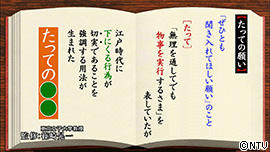 たっての願い
「ぜひとも
聞き入れてほしい願い」のこと
[たって]
「無理を通してでも
物事を実行するさま」を
表していたが
江戸時代に
下にくる行為が
切実であることを
強調する用法が
生まれた
たっての●●
©NTV